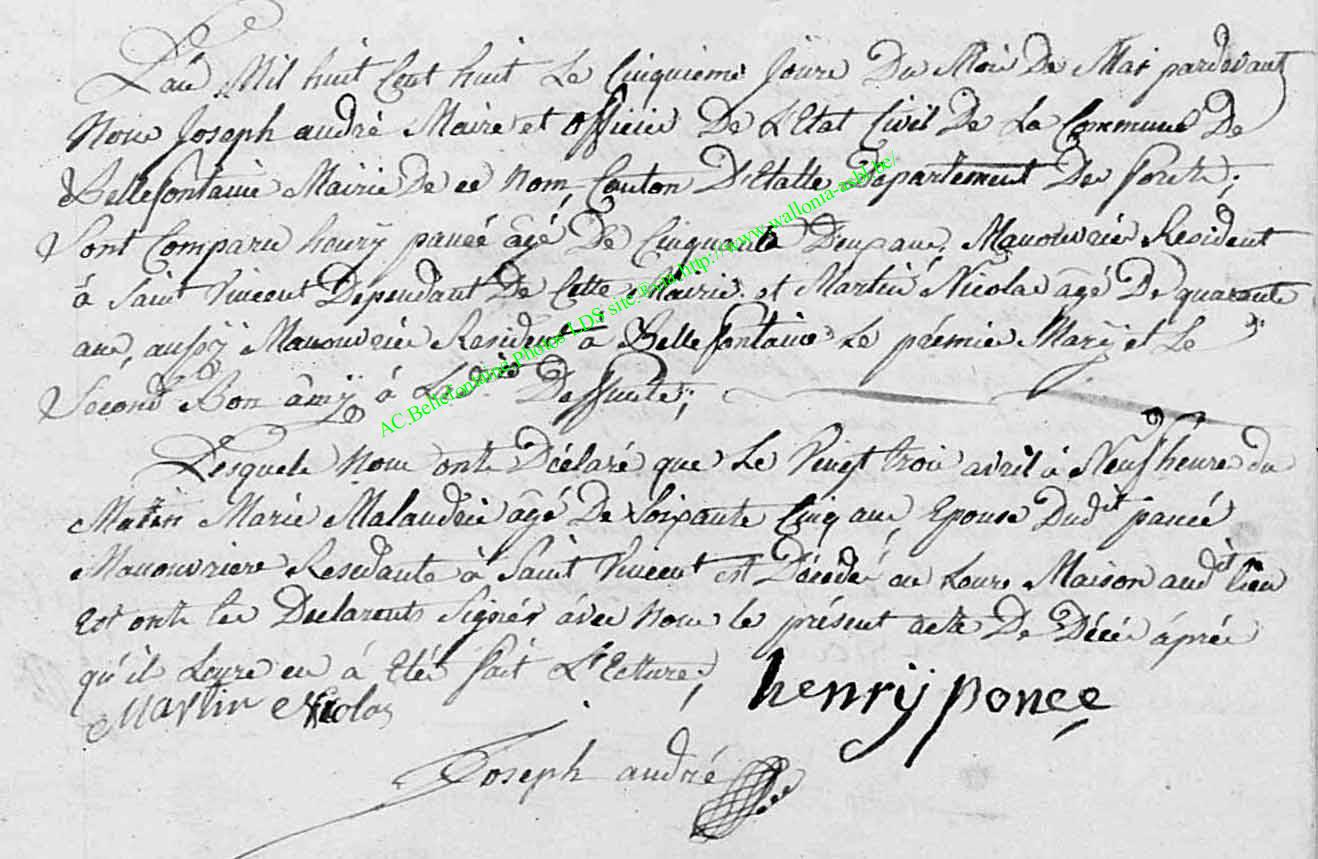 L'an Mil huit Cent huit Le Cinquieme Jour Du Mois De Mai pardevant
Nous Joseph andré Maire et officier De L'Etat Civil De La Commune De
Bellefontaine Mairie De ce Nom, Canton D'Etalle Departement Des forets;
Sont Comparu henrÿ pancé agé De Cinquante Deux ans, Manouvrier Resident
à Saint Vincent Dependant De Cette Mairie, et Martin Nicolas agé De quarante
ans, aussÿ Manouvrier Resident à Bellefontaine Le prémier Marÿ et Le
Second Bon amÿ à La dite Deffunte;
Lesquels Nous ont Déclaré que Le Vingt trois avril à Neuf heures du
Matin Marie Malaudrie agé De Soixante Cinq ans Epouse Dudit pancé
Manouvriere Residante à Saint Vincent est Décédé en Leurs Maison audit lieu
Et ont les Declarants Signés avec Nous le présent acte De Décé áprés
qu'il Leurs en à Eté fait L'Ecture;
Martin Nicolas
henrÿ ponce
Joseph andré
AC.Bellefontaine Photos LDS site http://www.wallonia-asbl.be/